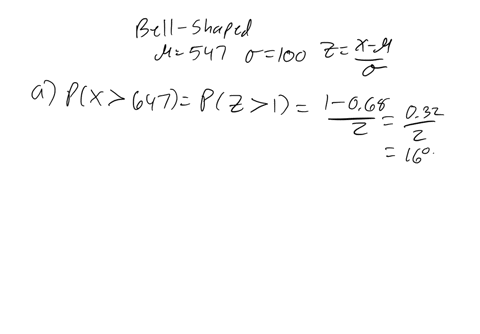 Bell-Shaped
μ=547 σ=100 z=x-μ/σ
a) P(X>647)=P(Z>1)=1-0.68/2=0.32/2
=16%